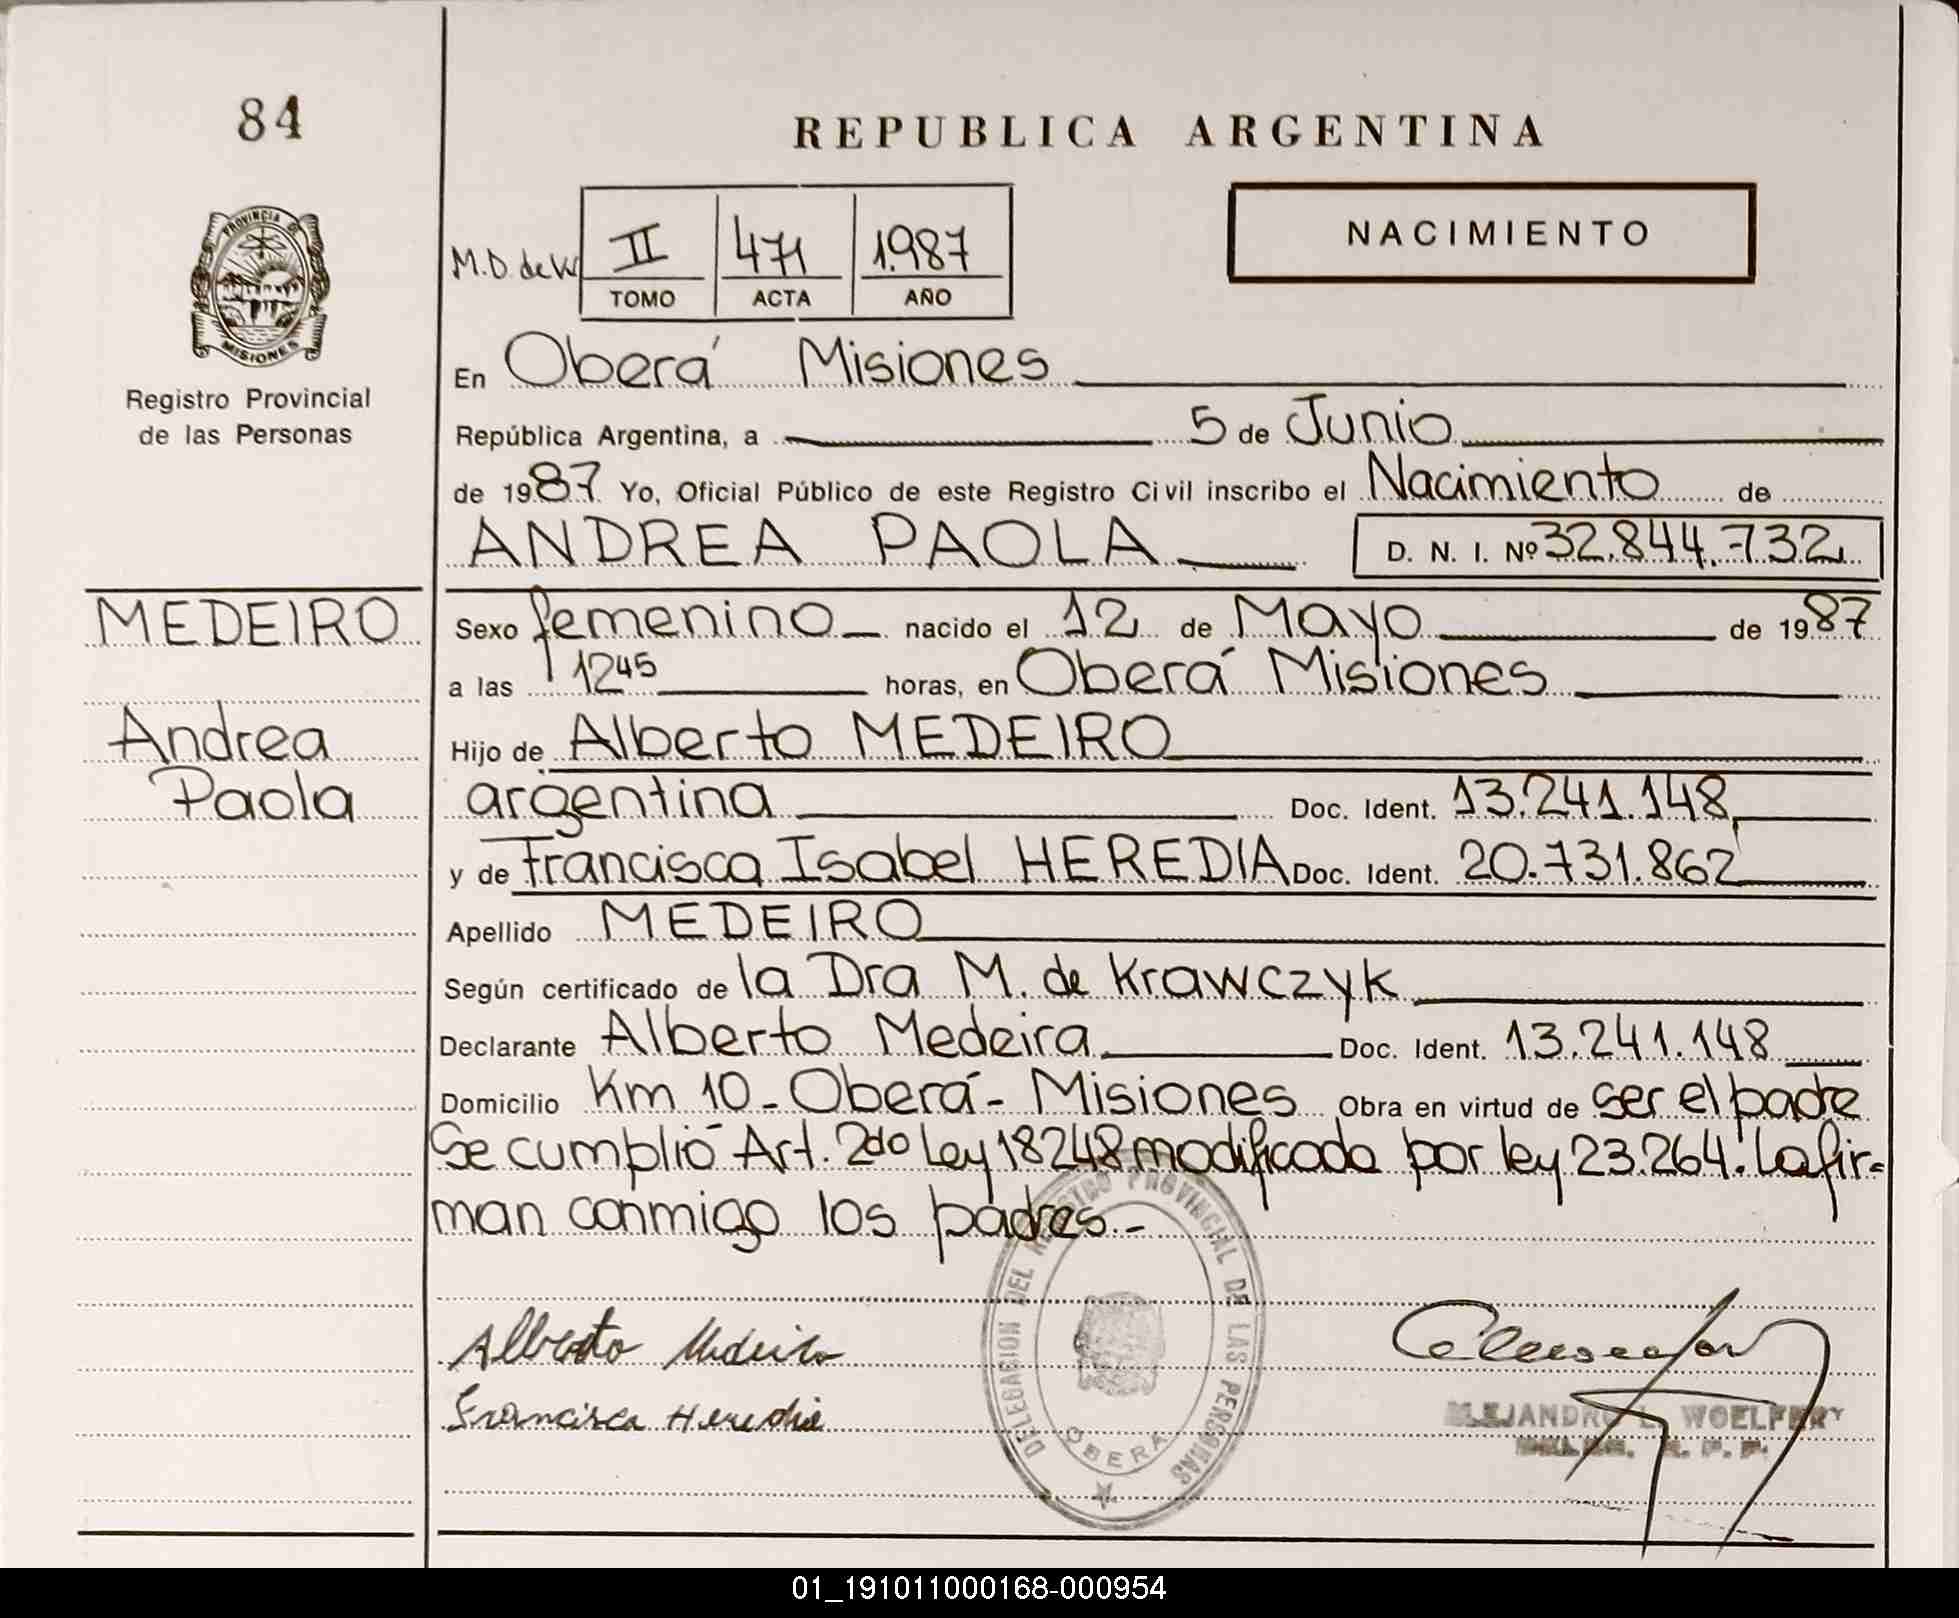 84
REPUBLICA ARGENTINA
NACIMIENTO
M.D. de W
II 471 1.987
TOMO ACTA AÑO
PROVINCIA DE
MISIONES
Registro Provincial
de las Personas
En Oberá Misiones
República Argentina, a 5 de Junio
de 1987 Yo, Oficial Público de este Registro Civil inscribo el Nacimiento de
ANDREA PAOLA D. N. I. Nº 32.844.732
MEDEIRO
Andrea
Paola
Sexo femenino nacido el 12 de Mayo de 1987
a las 12 45 horas, en Oberá Misiones
Hijo de Alberto MEDEIRO
argentina Doc. Ident. 13.241.148
y de Francisca Isabel HEREDIA Doc. Ident. 20.731.862
Apellido MEDEIRO
Según certificado de la Dra M. de Krawczyk
Declarante Alberto Medeira Doc. Ident. 13.241.148
Domicilio Km 10 - Oberá - Misiones Obra en virtud de ser el padre
Se cumplió Art. 2do Ley 18248 modificada por ley 23.264. La fir=
man conmigo los padres.-
Alberto Medeiro
Francisca Heredia
DELEGACION DEL REGISTRO PROVINCIAL DE LAS PERSONAS
OBERA
ALEJANDRO L. WOELFERT
R. P. P.
01_191011000168-000954